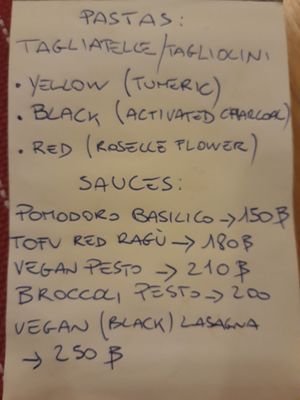 PASTAS:
TAGLIATELLE/TAGLIOLINI
• YELLOW (TUMERIC)
• BLACK (ACTIVATED CHARCOAL)
• RED (ROSELLE FLOWER)
SAUCES:
POMODORO BASILICO → 150 ฿
TOFU RED RAGÙ → 180 ฿
VEGAN PESTO → 210 ฿
BROCCOLI PESTO → 200
VEGAN (BLACK) LASAGNA
→ 250 ฿